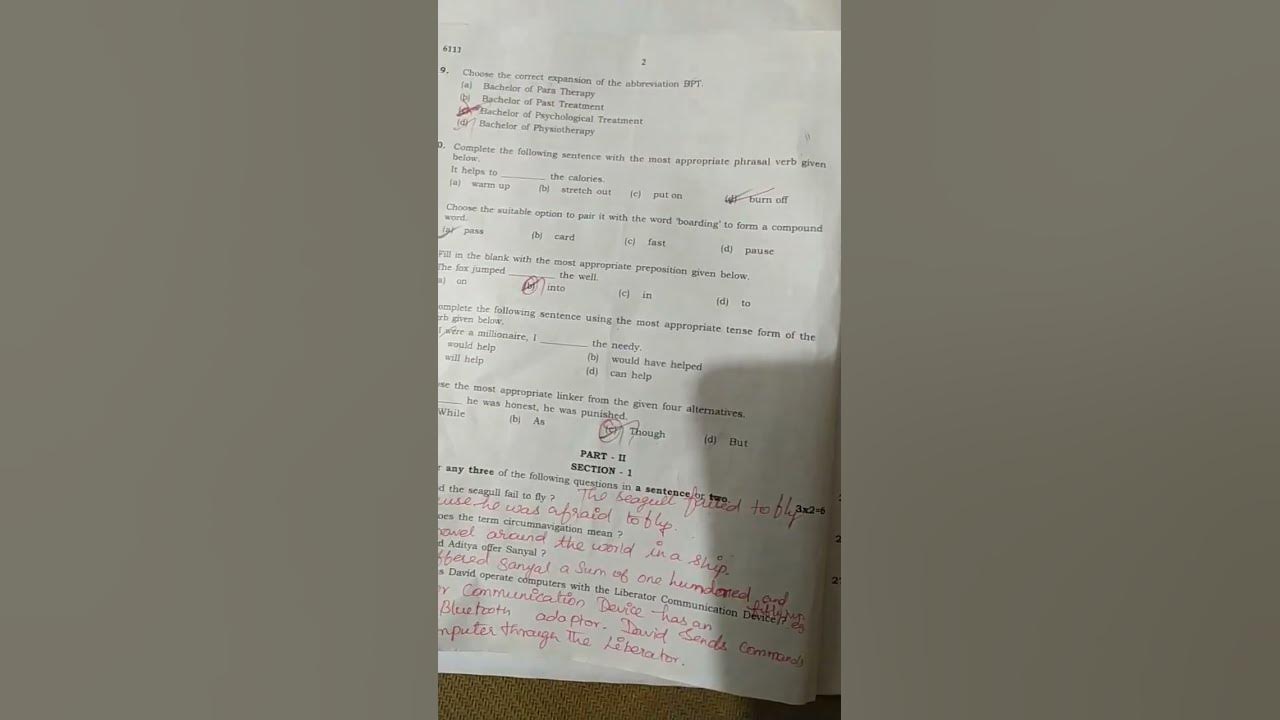 6111
2
9. Choose the correct expansion of the abbreviation BPT.
(a) Bachelor of Para Therapy
(b) Bachelor of Past Treatment
(c) Bachelor of Psychological Treatment
(d) Bachelor of Physiotherapy
0. Complete the following sentence with the most appropriate phrasal verb given
below.
It helps to ________ the calories.
(a) warm up (b) stretch out (c) put on (d) burn off
Choose the suitable option to pair it with the word 'boarding' to form a compound
word.
(a) pass (b) card (c) fast (d) pause
Fill in the blank with the most appropriate preposition given below.
The fox jumped ________ the well.
a) on (b) into (c) in (d) to
omplete the following sentence using the most appropriate tense form of the
rb given below.
I were a millionaire, I ________ the needy.
would help (b) would have helped
will help (d) can help
se the most appropriate linker from the given four alternatives.
____ he was honest, he was punished.
While (b) As (c) Though (d) But
PART - II
SECTION - 1
r any three of the following questions in a sentence or two. 3x2=6
d the seagull fail to fly ? The Seagull failed to fly
use he was afraid to fly.
oes the term circumnavigation mean ?
ravel around the world in a ship.
d Aditya offer Sanyal ?
ffered Sanyal a sum of one hundered and
s David operate computers with the Liberator Communication Device ?
or Communication Device has an
Bluetooth adaptor. David Sends Commands
mputer through the Liberator.